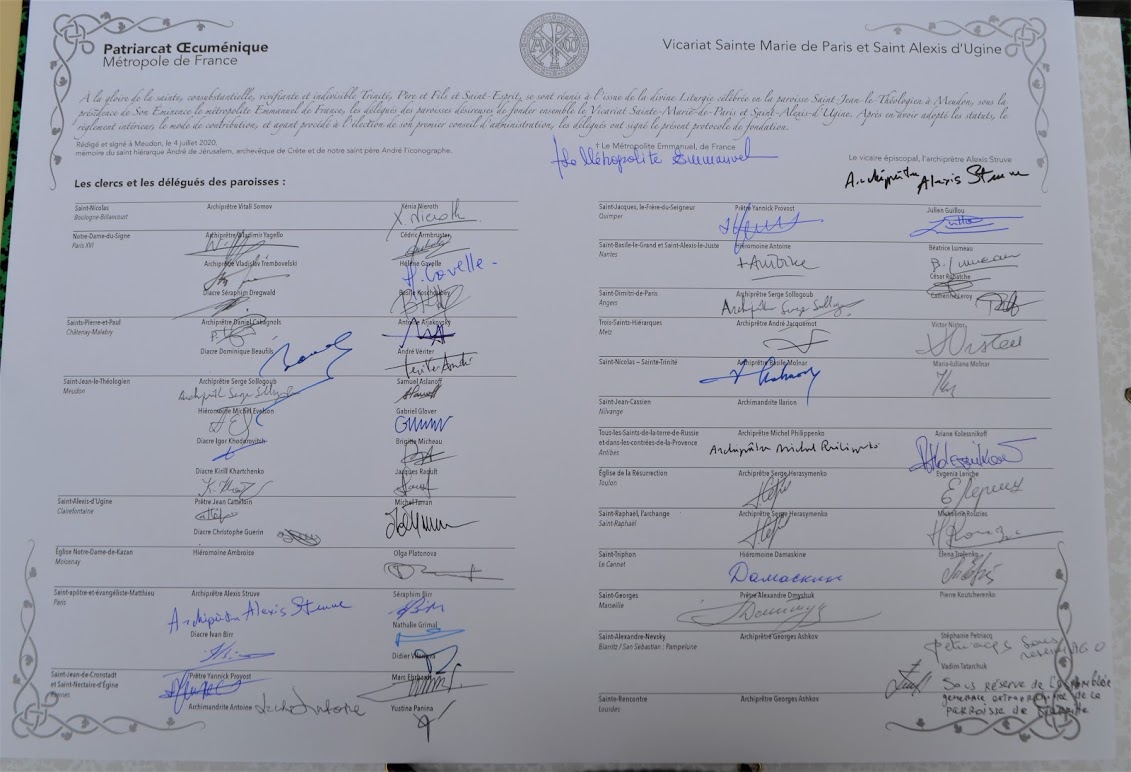 Patriarcat Œcuménique
Métropole de France
Vicariat Sainte Marie de Paris et Saint Alexis d'Ugine
À la gloire de la sainte, consubstantielle, vivifiante et indivisible Trinité, Père et Fils et Saint-Esprit, se sont réunis à l'issue de la divine Liturgie célébrée en la paroisse Saint-Jean-le-Théologien à Meudon, sous la
présidence de Son Eminence le métropolite Emmanuel de France, les délégués des paroisses désireuses de fonder ensemble le Vicariat Sainte-Marie-de-Paris et Saint-Alexis-d'Ugine. Après en avoir adopté les statuts, le
règlement intérieur, le mode de contribution, et ayant procédé à l'élection de son premier conseil d'administration, les délégués ont signé le présent protocole de fondation.
Rédigé et signé à Meudon, le 4 juillet 2020,
mémoire du saint hiérarque André de Jérusalem, archevêque de Crète et de notre saint père André l'iconographe.
† Le Métropolite Emmanuel, de France
†Le Métropolite Emmanuel
Le vicaire épiscopal, l'archiprêtre Alexis Struve
Archiprêtre Alexis Struve
Les clercs et les délégués des paroisses :
Saint-Nicolas
Boulogne-Billancourt
Archiprêtre Vitali Somov
Xénia Nieroth
X. Nieroth
Notre-Dame-du-Signe
Paris XVI
Archiprêtre Vladimir Yagello
Cédric Armbruster
Archiprêtre Vladislav Trembovelski
Hélène Gavelle
H. Gavelle
Diacre Séraphim Dregwald
Basile
Saints-Pierre-et-Paul
Châtenay-Malabry
Archiprêtre Daniel Cabagnols
Antoine Arjakovsky
Diacre Dominique Beaufils
André Vériter
Saint-Jean-le-Théologien
Meudon
Archiprêtre Serge Sollogoub
Archiprêtre Serge Sollogoub
Samuel Aslanoff
Hiéromoine Michel Evelson
Gabriel Glover
Diacre Igor Khodorovitch
Brigitte Micheau
Diacre Kirill Khartchenko
Jacques Rault
Saint-Alexis-d'Ugine
Clairefontaine
Prêtre Jean Cattelain
Michel
Diacre Christophe Guerin
Église Notre-Dame-de-Kazan
Moisenay
Hiéromoine Ambroise
Olga Platonova
Saint-apôtre-et-évangéliste-Matthieu
Paris
Archiprêtre Alexis Struve
Archiprêtre Alexis Struve
Séraphim Birr
Nathalie Grimal
Diacre Ivan Birr
Didier
Saint-Jean-de-Cronstadt
et Saint-Nectaire-d'Égine
Rennes
Prêtre Yannick Provost
Marc
Archimandrite Antoine
Yustina Panina
Saint-Jacques, le-Frère-du-Seigneur
Quimper
Prêtre Yannick Provost
Julien Guillou
Saint-Basile-le-Grand et Saint-Alexis-le-Juste
Nantes
Hiéromoine Antoine
+Antoine
Béatrice Lumeau
B. Lumeau
César
Catherine Leroy
Saint-Dimitri-de-Paris
Angers
Archiprêtre Serge Sollogoub
Archiprêtre Serge Sollogoub
Trois-Saints-Hiérarques
Metz
Archiprêtre André Jacquemot
Victor Nister
Saint-Nicolas – Sainte-Trinité
Archiprêtre Basile Molnar
Maria-Iuliana Molnar
Saint-Jean-Cassien
Nilvange
Archimandrite Ilarion
Tous-les-Saints-de-la-terre-de-Russie
et-dans-les-contrées-de-la-Provence
Antibes
Archiprêtre Michel Philippenko
Archiprêtre Michel Philippenko
Ariane Kolessnikoff
Église de la Résurrection
Toulon
Archiprêtre Serge Herasymenko
Evgenia Leriche
Saint-Raphaël, l'archange
Saint-Raphaël
Archiprêtre Serge Herasymenko
Micheline Rouziès
Saint-Triphon
Le Cannet
Hiéromoine Damaskine
Дамаскин
Elena
Saint-Georges
Marseille
Prêtre Alexandre Dmyshuk
Pierre Koutcherenko
Saint-Alexandre-Nevsky
Biarritz / San Sébastian : Pampelune
Archiprêtre Georges Ashkov
Stéphanie Petriacq
Petriacq sous réserve AGO
Vadim Tatarchuk
Sous réserve de l'Assemblée
générale extraordinaire de la
paroisse de Biarritz
Sainte-Rencontre
Lourdes
Archiprêtre Georges Ashkov